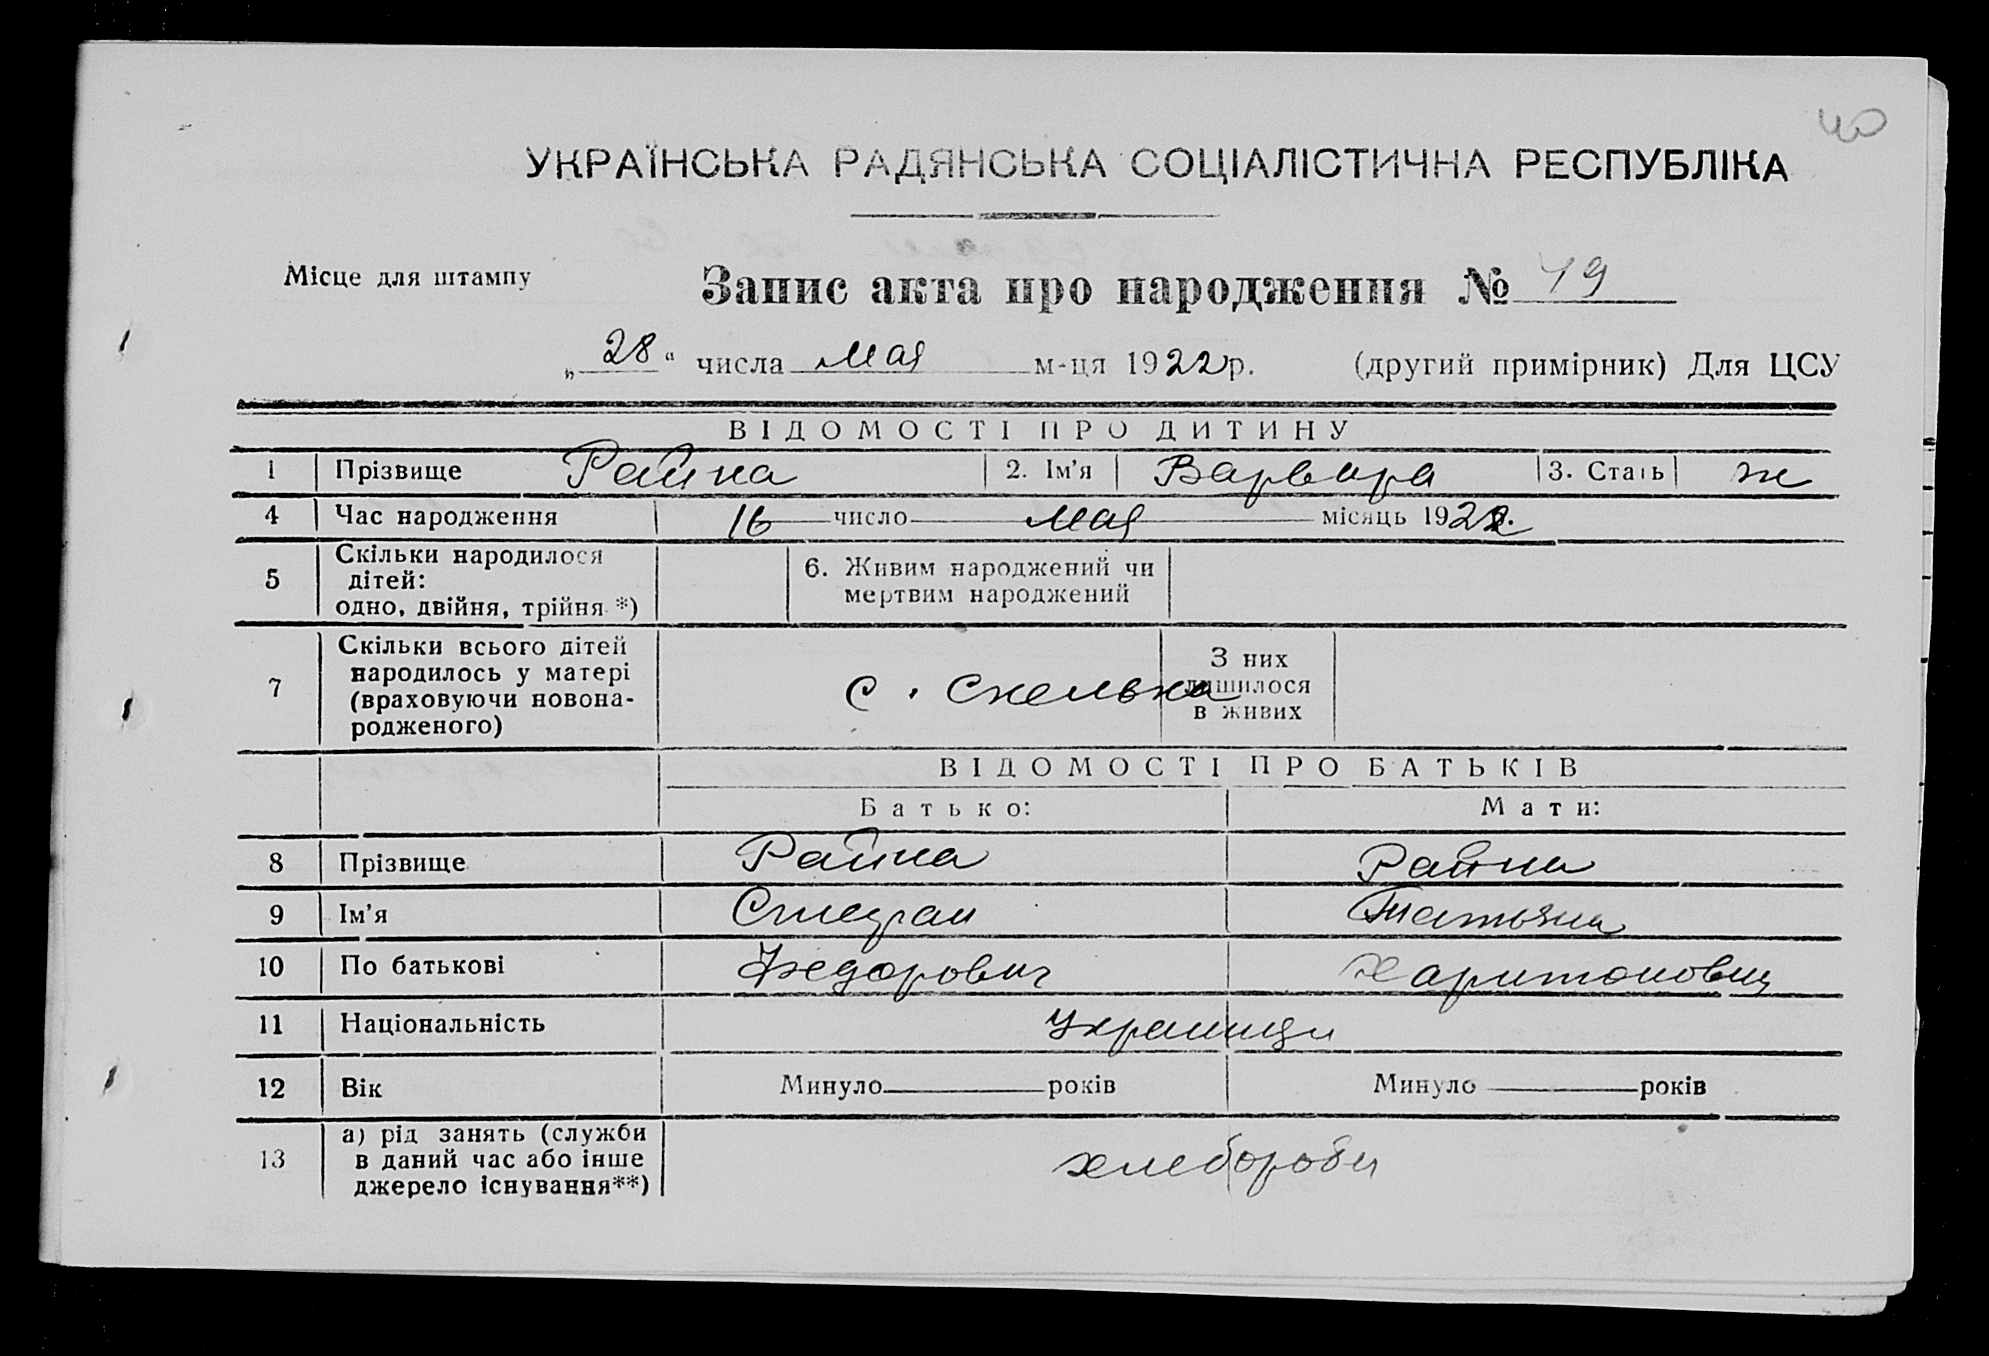 40
УКРАЇНСЬКА РАДЯНСЬКА СОЦІАЛІСТИЧНА РЕСПУБЛІКА
Місце для штампу
Запис акта про народження № 19
„ 28 “ числа Мая м-ця 1922 р. (другий примірник) Для ЦСУ
ВІДОМОСТІ ПРО ДИТИНУ
1 Прізвище Райна 2. Ім'я Варвара 3. Стать ж
4 Час народження 16 число Мая місяць 1922.
5 Скільки народилося дітей: одно, двійня, трійня *) 6. Живим народжений чи мертвим народжений
7 Скільки всього дітей народилось у матері (враховуючи новонародженого) с. Скелька З них лишилося в живих
ВІДОМОСТІ ПРО БАТЬКІВ
Батько: Мати:
8 Прізвище Райна Райна
9 Ім'я Стефан Татьяна
10 По батькові Федорович Харитоновна
11 Національність Украинцы
12 Вік Минуло років Минуло років
13 а) рід занять (служби в даний час або інше джерело існування**) хлеборобы